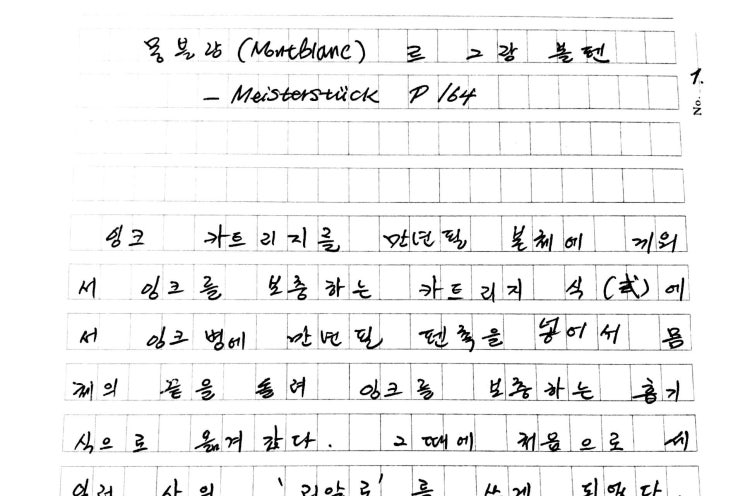 몽블랑 (Montblanc) 르 그랑 볼펜
– Meisterstück P 164
No. 1.
잉크 카트리지를 만년필 본체에 끼워
서 잉크를 보충하는 카트리지 식(式)에
서 잉크병에 만년필 펜촉을 넣어서 몸
체의 끝을 돌려 잉크를 보충하는 흡기
식으로 옮겨 갔다. 그 때에 처음으로 세
일러 사의 '리알로'를 쓰게 되었다.